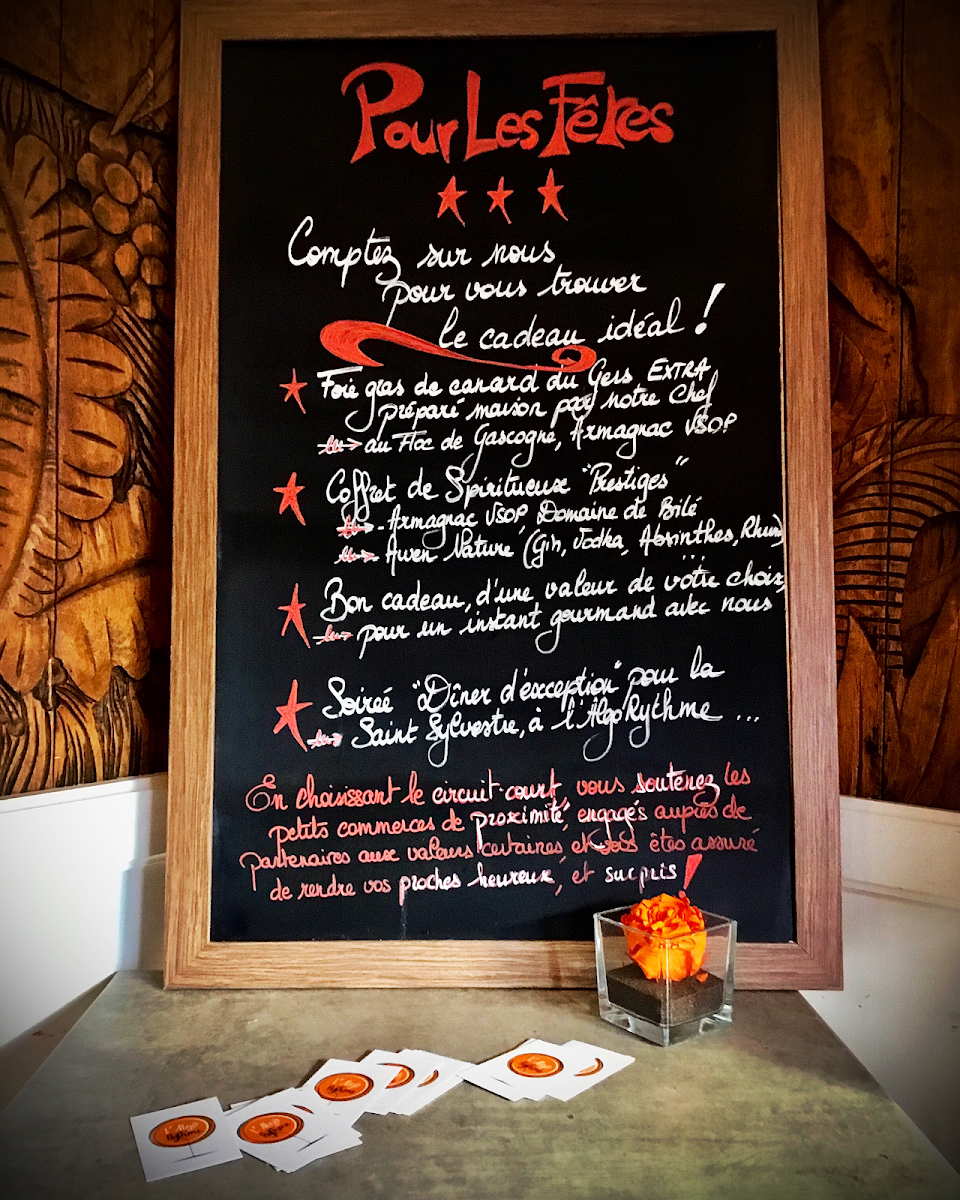 Pour Les Fêtes
Comptez sur nous
pour vous trouver
le cadeau idéal !
Foie gras de canard du Gers EXTRA
préparé maison par notre Chef
au Floc de Gascogne, Armagnac VSOP
Coffret de Spiritueux "Prestiges"
- Armagnac VSOP, Domaine de Bilé
Awen Nature (Gin, Vodka, Absinthes, Rhum)
...
Bon cadeau, d'une valeur de votre choix,
pour un instant gourmand avec nous
Soirée "Dîner d'exception" pour la
Saint Sylvestre, à l'AlgoRythme ...
En choisissant le circuit-court, vous soutenez les
petits commerces de proximité, engagés auprès de
partenaires aux valeurs certaines et vous êtes assuré
de rendre vos proches heureux, et surpris !
L'Algo
Rythme
L'Algo
Rythme
L'Algo
Rythme
L'Algo
Rythme